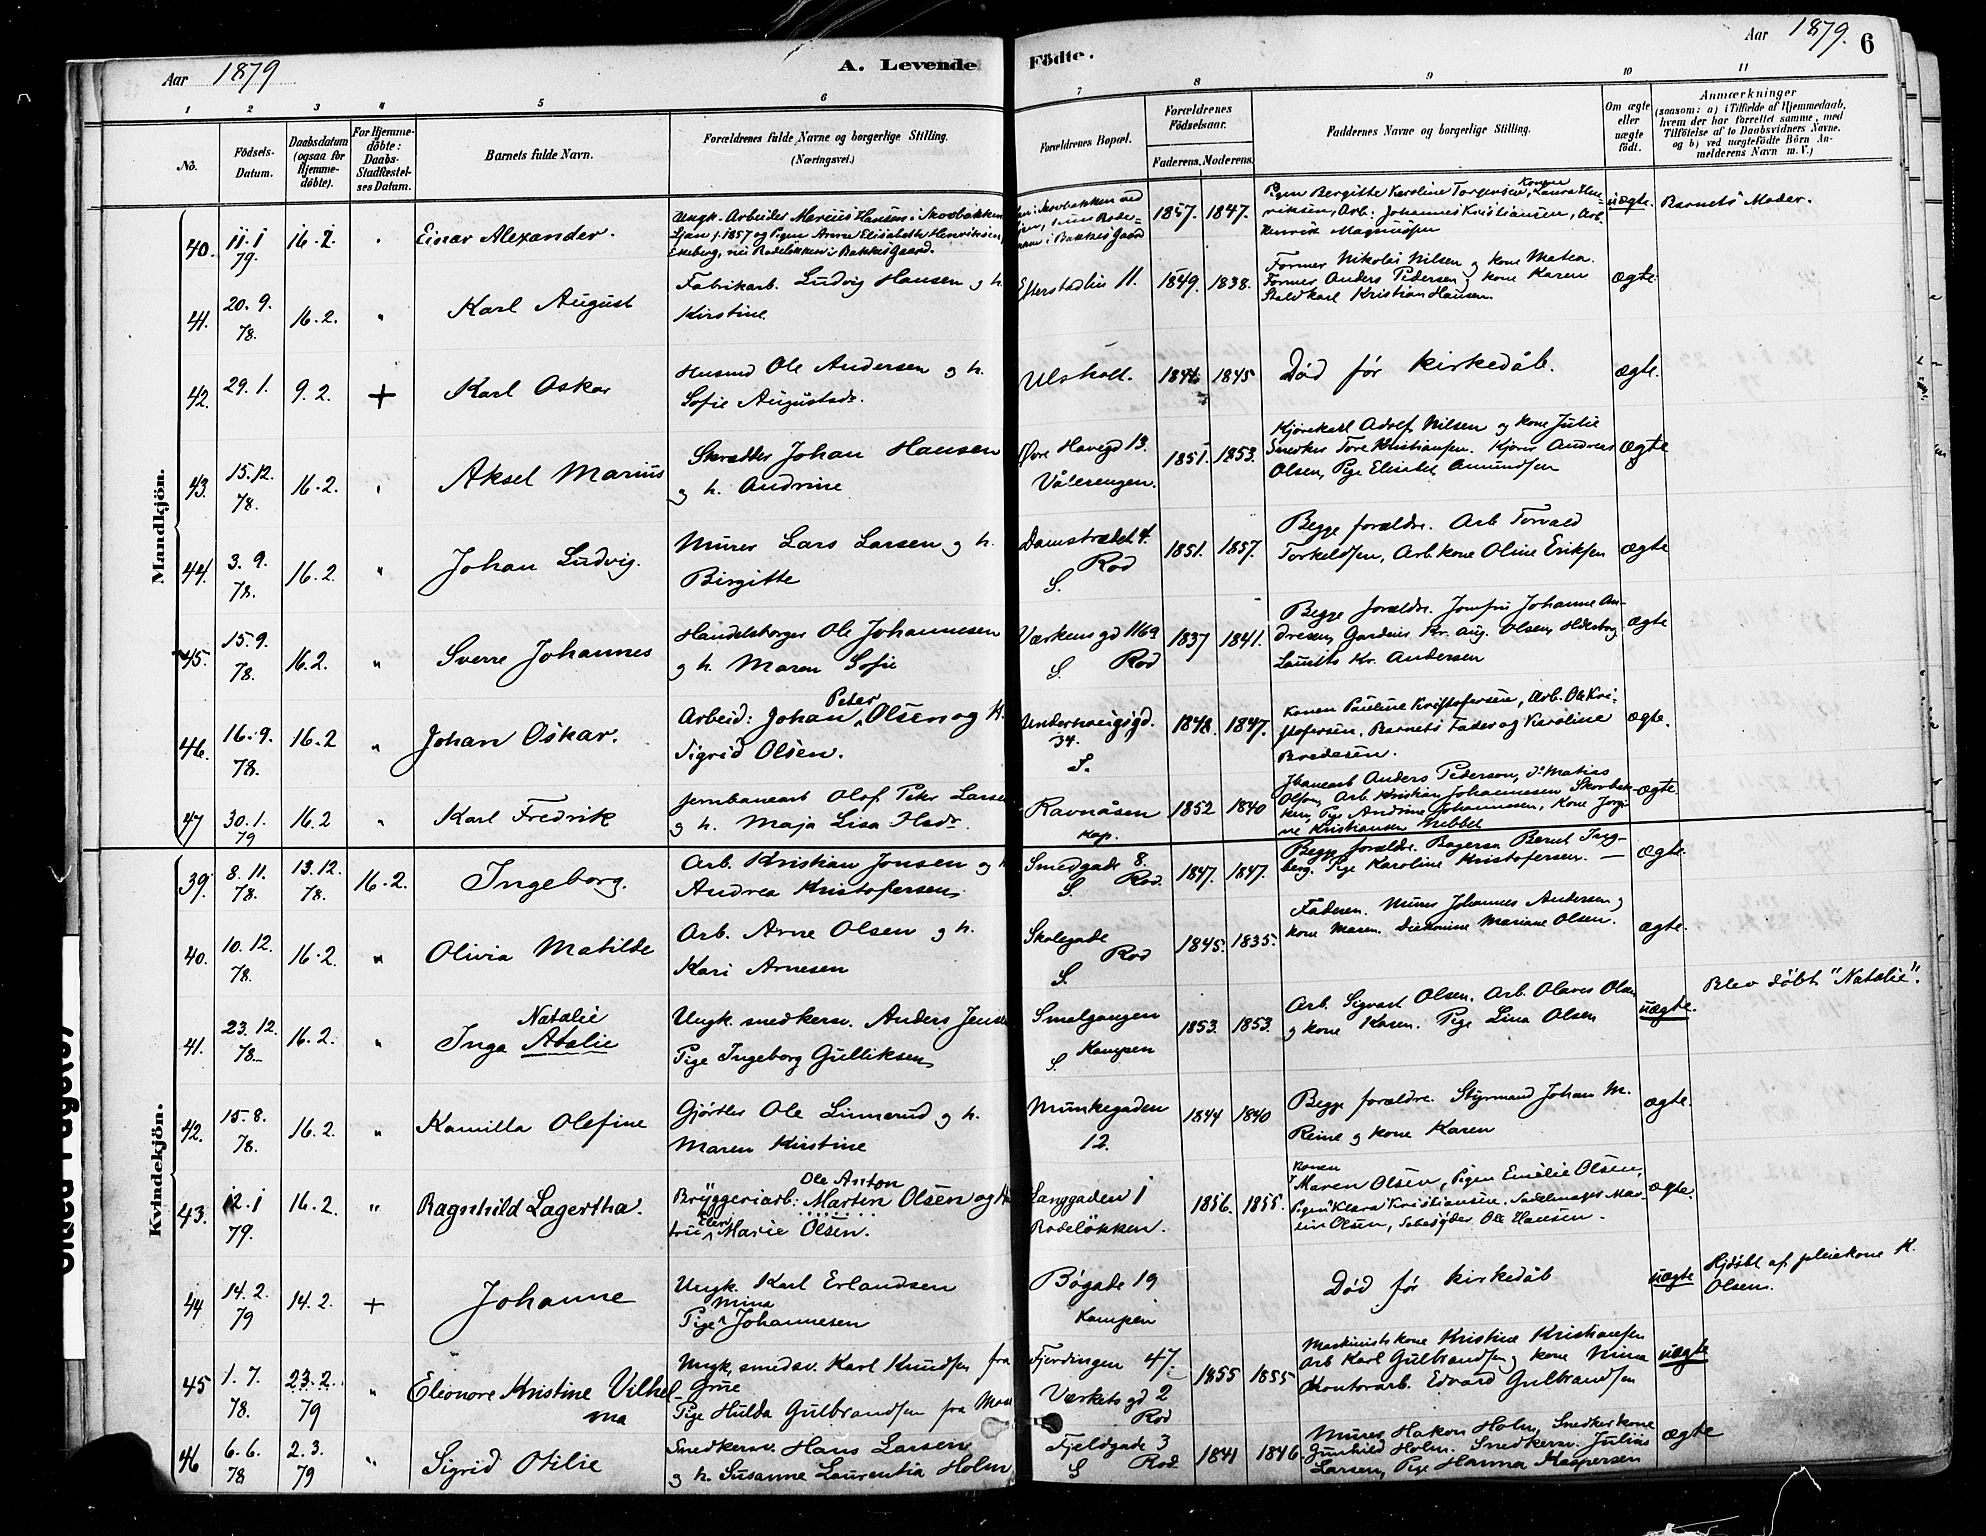 Aar 1879
A. Levende
Födte.
Aar 1879.
6
1 2 3 4 5 6 7 8 9 10 11
No.
Födsels-Datum.
Daabsdatum (ogsaa for Hjemme-döbte).
For Hjemme-döbte: Daabs-Stadfæstel-ses Datum.
Barnets fulde Navn.
Forældrenes fulde Navne og borgerlige Stilling. (Næringsvei.)
Forældrenes Bopæl.
Forældrenes Födselsaar.
Faderens. Moderens.
Faddernes Navne og borgerlige Stilling.
Om ægte eller uægte födt.
Anmærkninger
(saasom: a) i Tilfælde af Hjemmedaab,
hvem der har forrettet samme, med
Tilföielse af to Daabsvidners Navne.
og b) ved uægtefödte Börn An-
melderens Navn m. V.)
Mandkjön.
40. 11.1 79. 16.2. Einar Alexander.
Ungk. Arbeider Marius Hansen i Skovbakken
Ljan f. 1857 og Pigen Anne Elisabeth Henriksen,
Ekeberg, nu Rodeløkken i Bakkes Gaard.
1857. 1847.
Pigen Bergitte Karoline Torgersen, Konen Laura Hen-
riksen, Arb. Johannes Kristiansen, Arb.
Henrik Magnussen
uægte. Barnets Moder.
41. 20.9. 78. 16.2. " Karl August
Fabrikarb. Ludvig Hansen og h.
Kirstine.
Efterstadlia 11. 1849. 1838.
Former Nikolai Nilsen og kone Matea.
Former Anders Pedersen og kone Karen
Staldkarl Kristian Hansen.
ægte.
42. 29.1. 9.2. + Karl Oskar
Husmd Ole Andersen og h.
Sofie Augustadr.
Ulsholt. 1846 1845
Død før kirkedåb.
ægte.
43. 15.12. 78. 16.2. Aksel Marius
Skrædder Johan Hansen
og h. Andrine
Øvre Havegd 13.
Vålerengen.
1851. 1853.
Kjørekarl Adolf Nilsen og kone Julie
Snedker Tore Kristiansen. Kjører Andreas
Olsen, Pige Elisabet Amundsen
ægte
44. 3.9. 78. 16.2. " Johan Ludvig.
Murer Lars Larsen og h.
Birgitte
Damstrædet 4.
S. Rod
1851. 1857.
Begge forældre. Arb Torvald
Torkeldsen, Arb. kone Oline Eriksen
ægte
45. 15.9. 78. 16.2. " Sverre Johannes
Handelsborger Ole Johannesen
og h. Maren Sofie
Værkens gd 116a
S. Rod
1837 1841.
Begge forældre. Jomfru Johanne An-
dresen, Gardeur Kr. Aug. Olsen,
Laurits Kr. Andersen
ægte
46. 16.9. 78. 16.2 " Johan Oskar.
Arbeid: Johan Peter Olsen og H.
Sigrid Olsen.
Underhaugsgd.
34.
S.
1848. 1847.
Konen Pauline Kristofersen, Arb. Ole Kri-
stofersen, Barnets Fader og Karoline
Bredesen.
ægte.
47 30.1. 79 16.2 " Karl Fredrik
Jernbanearb Olof Peter Larse
og h. Maja Lisa Hsdr.
Ravnåsen
Kap.
1852 1840
Jbanearb Anders Pederson, do Matias
Olson, Arb. Kristian Johannesen Skovbak-
ken, Pige Andrine Johannesen, Kone Jorgi-
ne Kristiansen Nebbet
ægte.
Kvindekjön.
39. 8.11. 78. 13.12. 78. 16.2. Ingeborg.
Arb. Kristian Jonsen og h
Andrea Kristofersen
Smedgade 8.
S. Rod.
1847. 1847.
Begge forældre. Bagersv Bernt Ing-
berg. Pige Karoline Kristofersen. —
ægte.
40. 10.12. 78. 16.2. " Olivia Matilde
Arb. Arne Olsen og h.
Kari Arnesen
Skolegade
S. Rod
1845. 1835.
Faderen. Murer Johannes Andersen og
kone Maren. Diekonine Mariane Olsen.
ægte.
41. 23.12. 78. 16.2. " Natalie
Inga Atalie
Ungk. snedkersv. Anders Jense
Pige Ingeborg Gulliksen
Smalgangen
S. Kampen
1853. 1853.
Arb. Sigvart Olsen. Arb. Olaves Olsen
og kone Karen. Pige Lina Olsen
uægte.
Blev døbt "Natalie".
42. 15.8. 78. 16.2. " Kamilla Olefine
Gjørtler Ole Linnerud og h.
Maren Kirstine
Munkegaden
12.
1844 1840
Begge forældre. Styrmand Johan M.
Reine og kone Karen
ægte.
43. 12.1 79. 16.2. " Ragnhild Lagertha.
Ole Anton
Bryggeriarb: Martin Olsen og Hu
stru Elen Marie Olsen.
Langgaden 1
Rodeløkken.
1856. 1855.
Konen Maren Olsen, Pigen Emelie Olsen,
Pigen Klara Kristiansen. Sadelmager Mar-
tin Olsen, Sæbesyder Ole Hansen.
ægte.
44 14.2. 79 14.2. + Johanne
Ungk. Karl Erlandsen
Pige Mina Johannesen
Bøgade 19
Kampen
Død før kirkedåb
uægte
Hjdøbt af pleiekone K.
Olsen.
45 1.7. 78. 23.2. 79 " Eleonore Kristine Vilhel-
ma
Ungk, smedsv. Karl Knudsen fra
Grue
Pige Hulda Gulbrandsen fra Mos
Fjerdingen 47.
Værkets gd 2
Rod
1855 1855
Maskinistkone Kristine Kristiansen
Arb Karl Gulbrandsen og kone Mina
Kontorarb. Edvard Gulbrandsen
uægte
46 6.6. 78 2.3. 79 " Sigrid Otilie
Snedkersv. Hans Larsen
og h. Susanne Laurentia Holm
Fjeldgade 3
S Rod.
1841 1846.
Murer Hakon Holm, Snedkerkone
Gunhild Holm. Snedkersv. Julius
Larsen, Pige Hanna Kaspersen
ægte